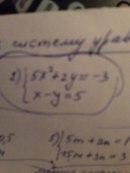 систему урав
2) { 5x² + 2y = -3
x - y = 5
5) { 5m + 2n =
15m + 3n = 3